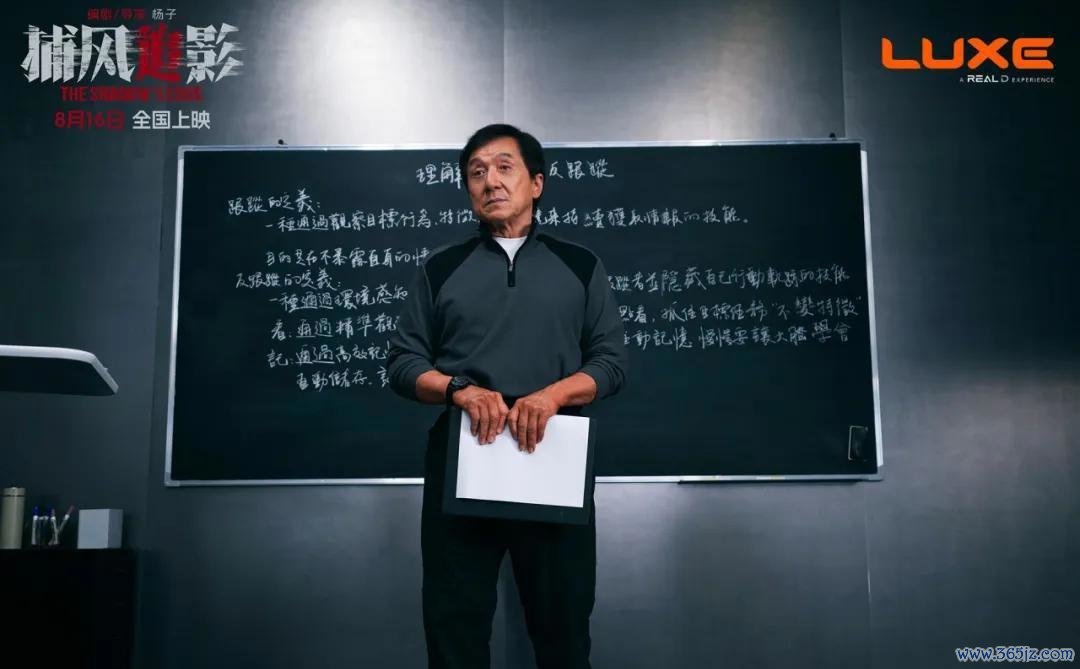 编剧/导演 杨子
捕风追影
THE SHADOW'S EDGE
8月16日 全国上映
LUXE
A REALD EXPERIENCE
理解 反跟蹤
跟蹤的定義：
一種通過觀察目標行為、特徵 境來持續獲取情報的技能。
目的是在不暴露自身的情
反跟蹤的定義：
一種通過環境感知 蹤者並隱藏自己行動軌跡的技能
看：通過精準觀 點看，抓住目標任務“不變特徵”
記：通過高效記憶 主動記憶，慢慢要讓大腦學會
自動儲存、
www.365jz.com